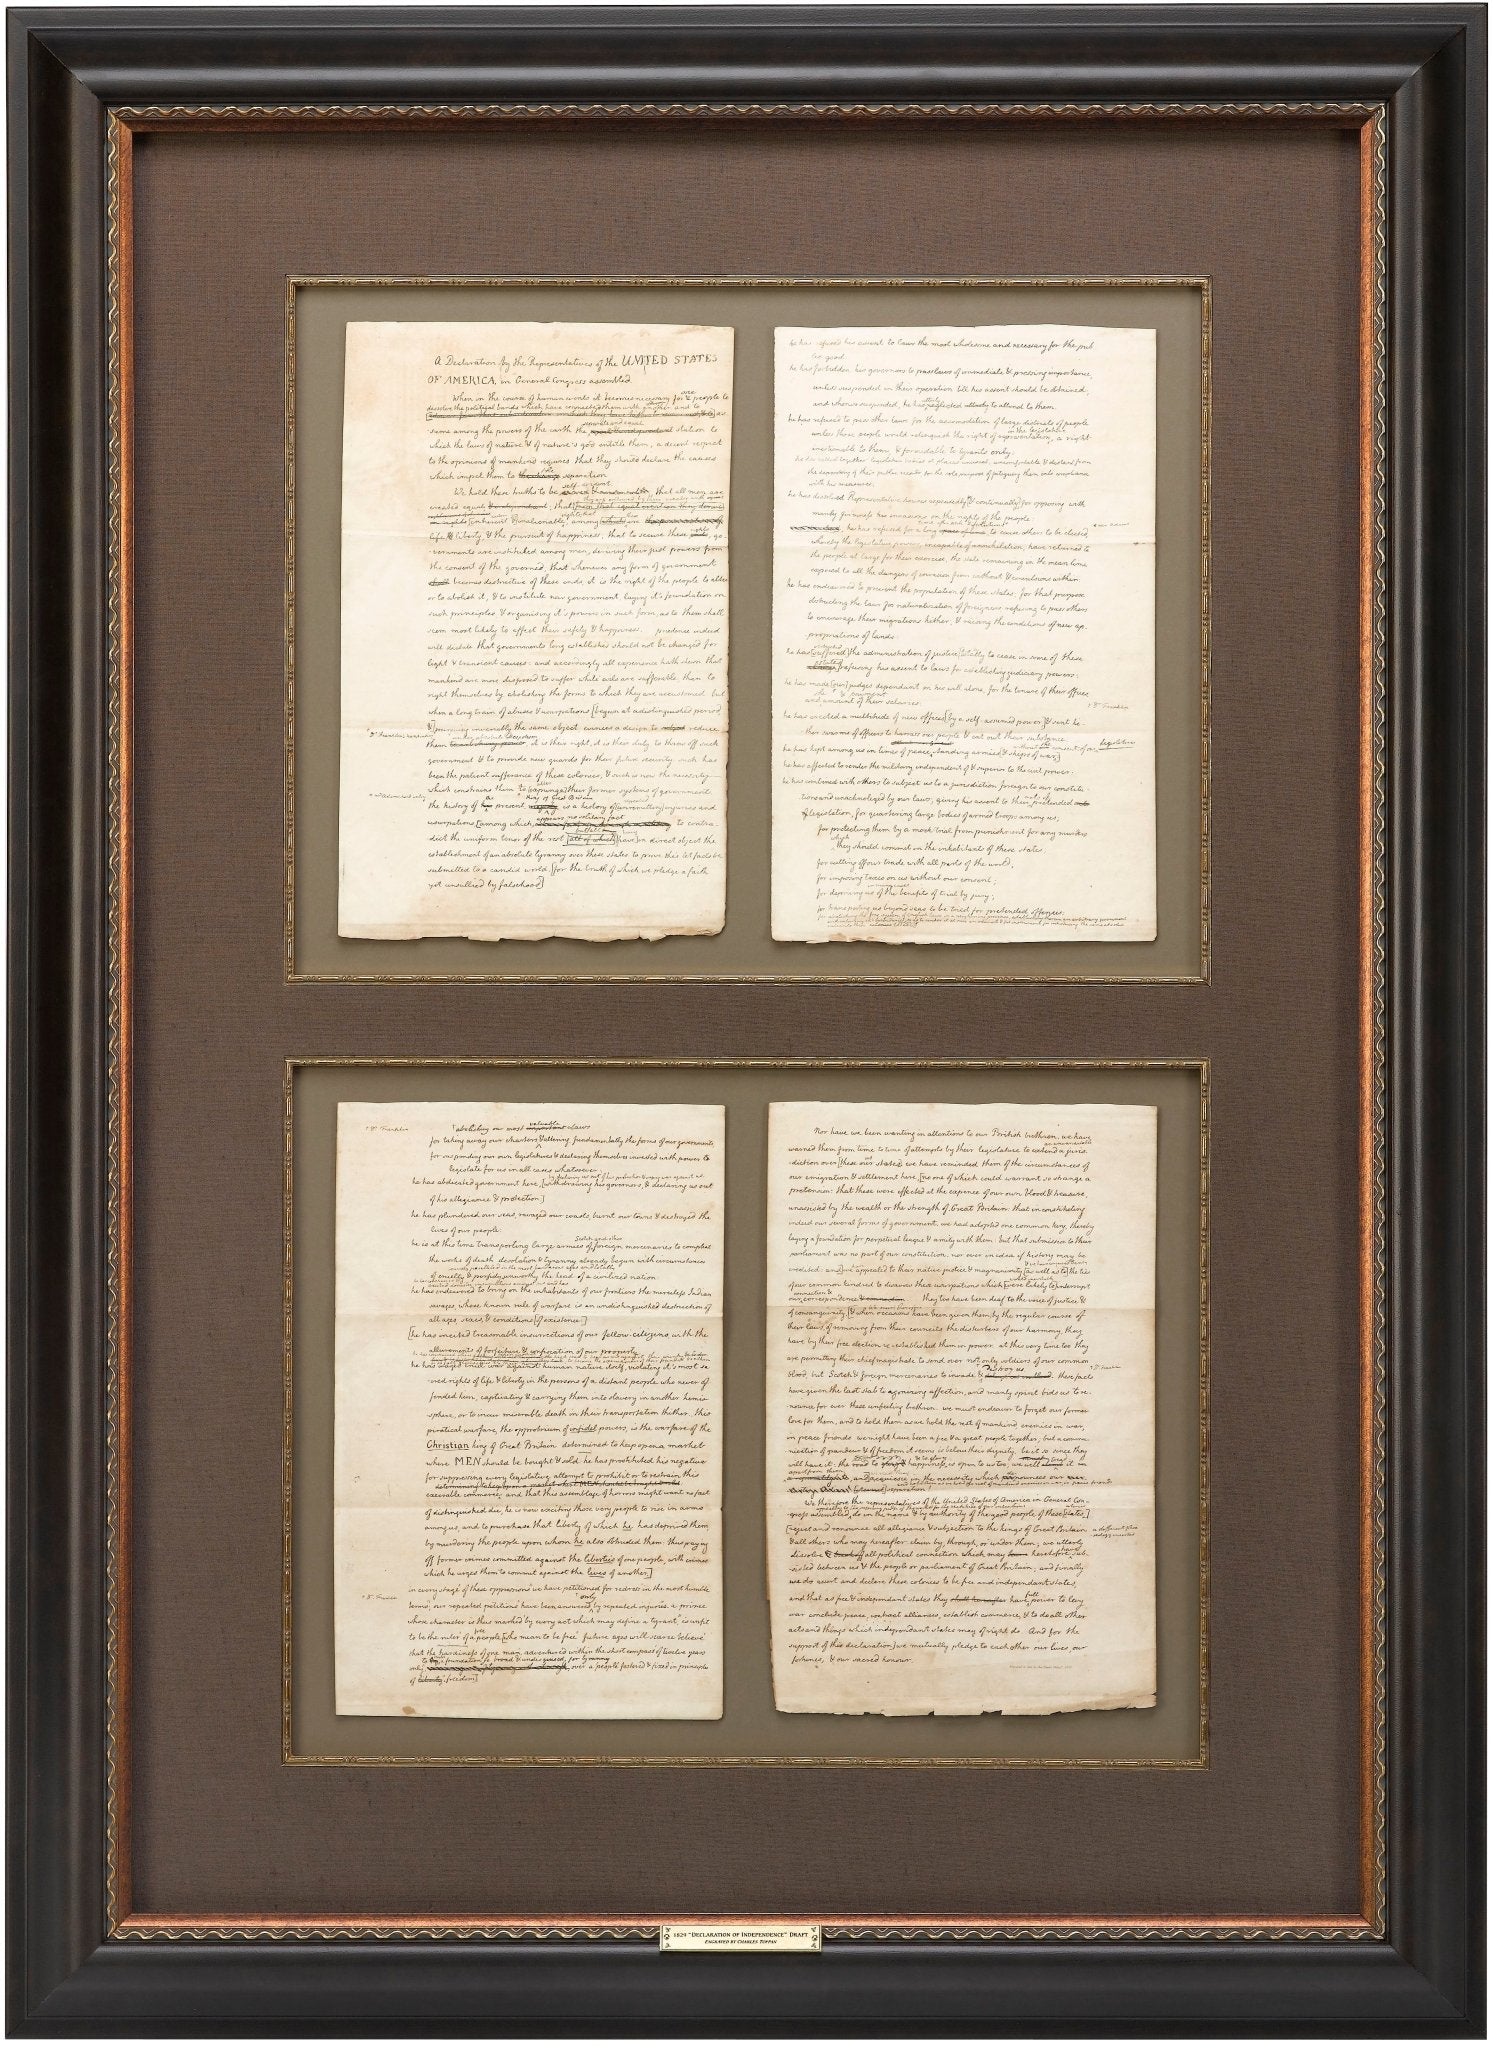 A Declaration by the Representatives of the UNITED STATES
OF AMERICA, in General Congress assembled.
When in the course of human events it becomes necessary for a people to
dissolve the political bands which have connected them with another, and to
-sume among the powers of the earth the station to
which the laws of nature & of nature's god entitle them, a decent respect
to the opinions of mankind requires that they should declare the causes
which impel them to the separation.
self-evident
We hold these truths to be that all men are
created equal
life & liberty, & the pursuit of happiness; that to secure these go-
-vernments are instituted among men, deriving their just powers from
the consent of the governed; that whenever any form of government
becomes destructive of these ends, it is the right of the people to alter
or to abolish it, & to institute new government, laying it's foundation on
such principles & organising it's powers in such form, as to them shall
seem most likely to effect their safety & happiness. prudence indeed
will dictate that governments long established should not be changed for
light & transient causes: and accordingly all experience hath shewn that
mankind are more disposed to suffer while evils are sufferable, than to
right themselves by abolishing the forms to which they are accustomed. but
when a long train of abuses & usurpations [begun at a distinguished period
&] pursuing invariably the same object, evinces a design to reduce
them it is their right, it is their duty, to throw off such
government & to provide new guards for their future security. such has
been the patient sufferance of these colonies; & such is now the necessity
which constrains them to [expunge] their former systems of government.
the history of present is a history of injuries and
usurpations [among which to contra-
-dict the uniform tenor of the rest [all of which] [have] in direct object the
establishment of an absolute tyranny over these states. to prove this let facts be
submitted to a candid world, [for the truth of which we pledge a faith
yet unsullied by falsehood]
he has refused his assent to laws the most wholesome and necessary for the pub-
-lic good:
he has forbidden his governors to pass laws of immediate & pressing importance,
unless suspended in their operation till his assent should be obtained;
and when so suspended, he has neglected utterly to attend to them.
he has refused to pass other laws for the accomodation of large districts of people
unless those people would relinquish the right of representation, a right
inestimable to them, & formidable to tyrants only:
he has dissolved Representative houses repeatedly [& continually] for opposing with
manly firmness his invasions on the rights of the people:
he has refused for a long to cause others to be elected,
whereby the legislative powers, incapable of annihilation, have returned to
the people at large for their exercise, the state remaining in the mean time
exposed to all the dangers of invasion from without & convulsions within:
he has endeavored to prevent the population of these states; for that purpose
obstructing the laws for naturalization of foreigners, refusing to pass others
to encourage their migrations hither, & raising the conditions of new ap-
-propriations of lands:
he has [suffered] the administration of justice [totally to cease in some of these
refusing his assent to laws for establishing judiciary powers:
he has made [our] judges dependant on his will alone, for the tenure of their offices,
and amount of their salaries:
he has erected a multitude of new offices [by a self-assumed power] & sent hi-
-ther swarms of officers to harrass our people & eat out their substance:
he has kept among us in times of peace, standing armies [& ships of war]
he has affected to render the military independent of & superior to the civil power:
he has combined with others to subject us to a jurisdiction foreign to our constitu-
-tions and unacknoleged by our laws; giving his assent to their pretended
of legislation, for quartering large bodies of armed troops among us;
for protecting them by a mock-trial from punishment for any murders
which
they should commit on the inhabitants of these states;
for cutting off our trade with all parts of the world;
for imposing taxes on us without our consent;
for depriving us of the benefits of trial by jury;
for transporting us beyond seas to be tried for pretended offences:
abolishing our most laws
for taking away our charters & altering fundamentally the forms of our governments
for suspending our own legislatures & declaring themselves invested with power to
legislate for us in all cases whatsoever:
he has abdicated government here, [withdrawing his governors, & declaring us out
of his allegiance & protection:]
he has plundered our seas, ravaged our coasts, burnt our towns & destroyed the
lives of our people:
Scotch and other
he is at this time transporting large armies of foreign mercenaries to compleat
the works of death, desolation & tyranny already begun with circumstances
of cruelty & perfidy unworthy the head of a civilized nation:
he has endeavored to bring on the inhabitants of our frontiers the merciless Indian
savages, whose known rule of warfare is an undistinguished destruction of
all ages, sexes, & conditions [of existence:]
[he has incited treasonable insurrections of our fellow-citizens, with the
allurements of forfeiture & confiscation of our property:
he has waged cruel war against human nature itself, violating it's most sa-
-cred rights of life & liberty in the persons of a distant people who never of-
fended him, captivating & carrying them into slavery in another hemi-
sphere, or to incur miserable death in their transportation thither. this
piratical warfare, the opprobrium of infidel powers, is the warfare of the
Christian king of Great Britain. determined to keep open a market
where MEN should be bought & sold, he has prostituted his negative
for suppressing every legislative attempt to prohibit or to restrain this
execrable commerce: and that this assemblage of horrors might want no fact
of distinguished die, he is now exciting those very people to rise in arms
among us, and to purchase that liberty of which he has deprived them,
by murdering the people upon whom he also obtruded them; thus paying
off former crimes committed against the liberties of one people, with crimes
which he urges them to commit against the lives of another.]
in every stage of these oppressions we have petitioned for redress in the most humble
terms; our repeated petitions have been answered by repeated injuries. a prince
whose character is thus marked by every act which may define a tyrant, is unfit
to be the ruler of a people [who mean to be free. future ages will scarce believe
that the hardiness of one man, adventured within the short compass of twelve years
only over a people fostered & fixed in principles
of freedom]
Nor have we been wanting in attentions to our British brethren. we have
warned them from time to time of attempts by their legislature to extend a juris-
-diction over [these our states]. we have reminded them of the circumstances of
our emigration & settlement here, [no one of which could warrant so strange a
pretension: that these were effected at the expence of our own blood & treasure,
unassisted by the wealth or the strength of Great Britain: that in constituting
indeed our several forms of government, we had adopted one common king, thereby
laying a foundation for perpetual league & amity with them: but that submission to their
parliament was no part of our constitution, nor ever in idea, if history may be
credited: and] we appealed to their native justice & magnanimity [as well as to] the ties
of our common kindred to disavow these usurpations which [were likely to] interrupt
our correspondence & they too have been deaf to the voice of justice &
of consanguinity, [& when occasions have been given them, by the regular course of
their laws, of removing from their councils the disturbers of our harmony, they
have by their free election re-established them in power. at this very time too they
are permitting their chief magistrate to send over not only soldiers of our common
blood, but Scotch & foreign mercenaries to invade & these facts
have given the last stab to agonizing affection, and manly spirit bids us to re-
-nounce for ever these unfeeling brethren. we must endeavor to forget our former
love for them, and to hold them as we hold the rest of mankind enemies in war,
in peace friends. we might have been a free & a great people together; but a commu-
-nication of grandeur & of freedom it seems is below their dignity. be it so, since they
will have it: the road to happiness is open to us too; we will it in
and acquiesce in the necessity which our
separation!
We therefore the representatives of the United States of America in General Con-
-gress assembled, do in the name & by authority of the good people of these [states,]
[reject and renounce all allegiance & subjection to the kings of Great Britain
& all others who may hereafter claim by, through, or under them; we utterly
dissolve all political connection which may have heretofore sub-
-sisted between us & the people or parliament of Great Britain; and finally
we do assert and declare these colonies to be free and independant states,
and that as free & independant states they have full power to levy
war, conclude peace, contract alliances, establish commerce, & to do all other
acts and things which independant states may of right do. And for the
support of this declaration] we mutually pledge to each other our lives, our
fortunes, & our sacred honour.
1829 "DECLARATION OF INDEPENDENCE" DRAFT
ENGRAVED BY CHARLES TOPPAN